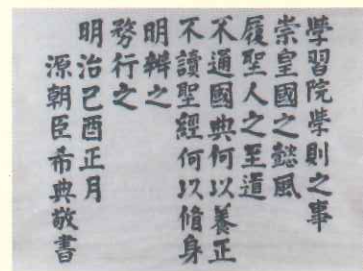 學習院學則之事
崇皇國之懿風
履聖人之至道
不通國典何以養正
不讀聖經何以脩身
明辨之
務行之
明治己酉正月
源朝臣希典敬書